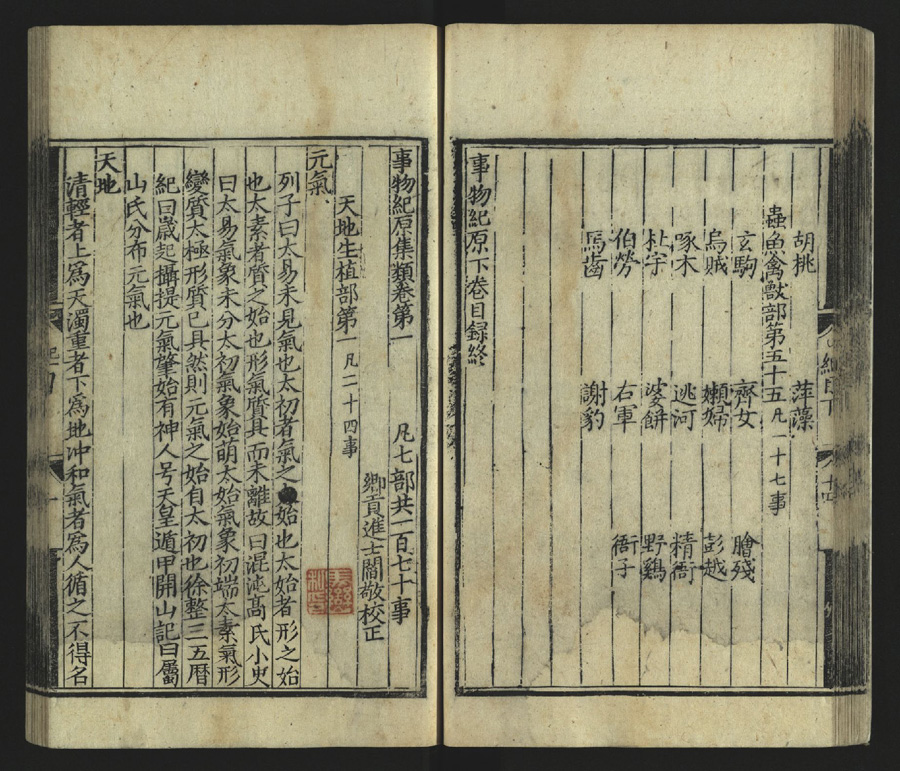 胡桃 萍藻
蟲魚禽獸部第五十五凡一十七事
玄駒 齊女 膾殘
烏賊 嬾婦 彭越
啄木 逃河 精衛
杜宇 婆餅 野鷄
伯勞 右軍 衙子
馬齒 謝豹
事物紀原下卷目録終
事物紀原集類卷第一 凡七部共一百七十事
鄉貢進士閻敬校正
天地生植部第一凡二十四事
元氣
列子曰太易未見氣也太初者氣之始也太始者形之始
也太素者質之始也形氣質具而未離故曰混沌高氏小史
曰太易氣象未分太初氣象始萌太始氣象初端太素氣形
變質太極形質已具然則元氣之始自太初也徐整三五暦
紀曰歲起攝提元氣肇始有神人号天皇遁甲開山記曰屬
山氏分布元氣也
天地
清輕者上爲天濁重者下爲地冲和氣者爲人循之不得名